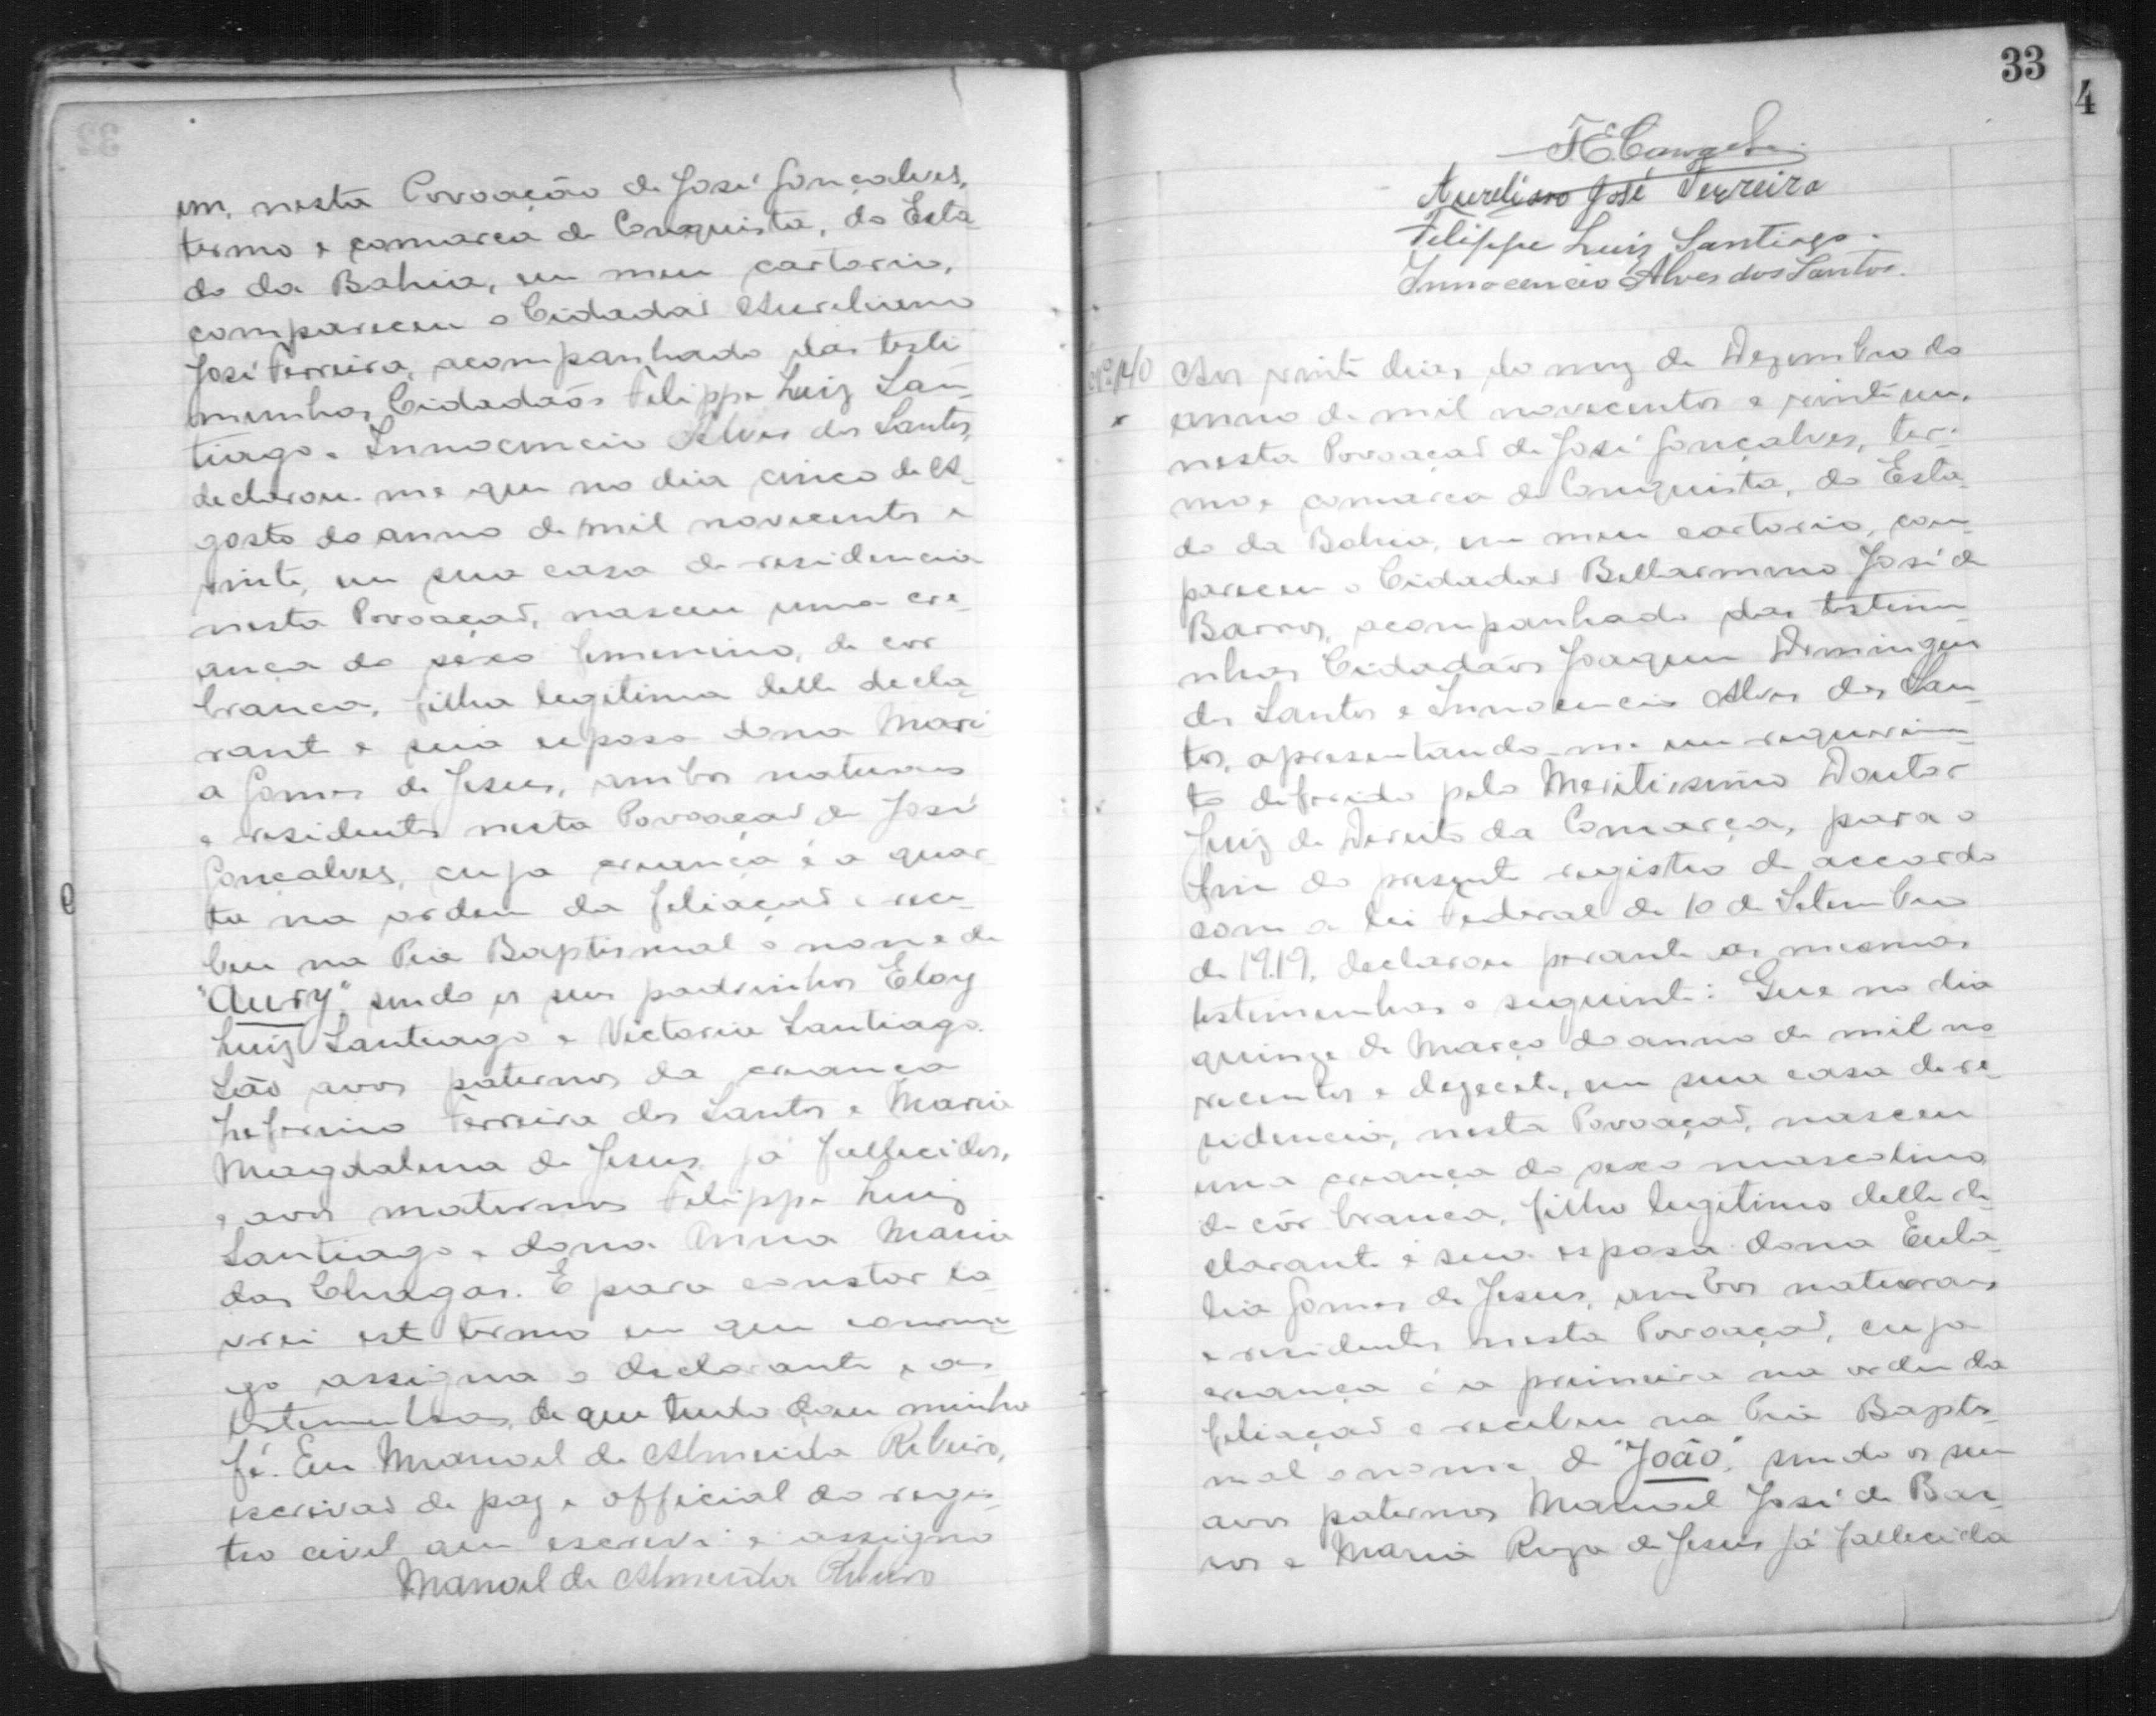 um, nesta Povoação de José Gonçalves,
termo e comarca de Conquista, do Esta-
do da Bahia, em meu cartorio,
compareceu o Cidadaõ Aureliano
José Ferreira, acompanhado das teste-
munhas Cidadãos Felippe Luiz San-
tiago e Innocencio Alves dos Santos,
declarou-me que no dia cinco de A-
gosto do anno de mil novecentos e
vinte, em sua casa de residencia
nesta Povoaçaõ, nasceu uma cre-
ança do sexo femenino, de cor
branca, filha legitima delle decla-
rante e sua esposa dona Mari-
a Gomes de Jesus, ambos naturaes
e residentes nesta Povoaçaõ de José
Gonçalves, cuja creança é a quar-
ta na ordem da filiaçaõ e rece-
beu na Pia Baptismal o nome de
"Aury", sendo os seus padrinhos Eloy
Luiz Santiago e Victoria Santiago.
São avos paternos da creança
Zeferino Ferreira dos Santos e Maria
Magdalena de Jesus, já fallecidos,
e avos maternos Felippe Luiz
Santiago e dona Anna Maria
das Chagas. E para constar la-
vrei este termo em que commi-
go assigna o declarante e as
testemunhas, de que tudo dou minha
fé. Eu Manoel de Almeida Ribeiro,
escrivaõ de paz e official do regis-
tro civil que escrevi e assigno
Manoel de Almeida Ribeiro
33
4
Aureliano José Ferreira
Felippe Luiz Santiago.
Innocencio Alves dos Santos.
Nº 140 Aos vinte dias do mez de Dezembro do
anno de mil novecentos e vinte um,
nesta Povoaçaõ de José Gonçalves, ter-
mo e comarca de Conquista, do Esta-
do da Bahia, em meu cartorio, com-
pareceu o Cidadaõ Bellarmino José de
Barros, acompanhado das testemu-
nhas Cidadãos Joaquim Domingues
dos Santos e Innocencio Alves dos San-
tos, apresentando-me um requerimen-
to deferido pelo Meritissimo Doutor
Juiz de Direito da Comarca, para o
fim do presente registro de accordo
com a lei Federal de 10 de Setembro
de 1919, declarou perante as mesmas
testemunhas o seguinte: Que no dia
quinze de Março do anno de mil no-
vecentos e dezecete, em sua casa de re-
sidencia, nesta Povoaçaõ, nasceu
uma creança do sexo mascolino
de côr branca, filho legitimo delle de-
clarante e sua esposa dona Eula-
lia Gomes de Jesus, ambos naturaes
e residentes nesta Povoaçaõ, cuja
creança é a primeira na ordem da
filiaçaõ e recebeu na Pia Baptis-
mal o nome de "João", sendo os seus
avos paternos Manoel José de Bar-
ros e Maria Roza de Jesus já fallecida